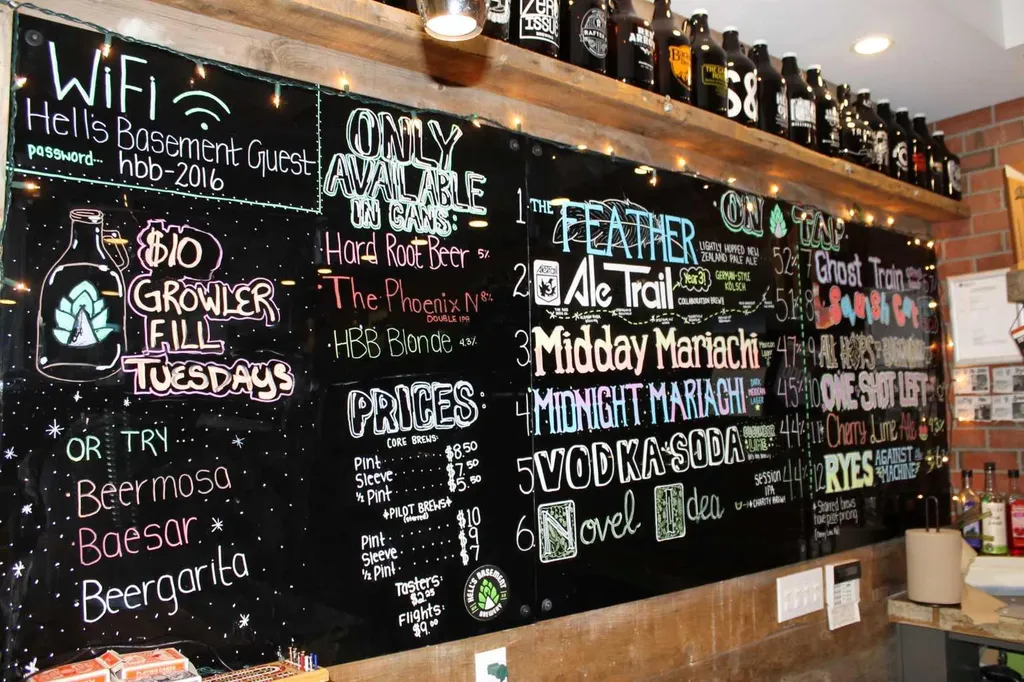 WiFi
Hell's Basement Guest
password... hbb-2016
$10
GROWLER
FILL
TUESDAYS
OR TRY
·Beermosa
·Baesar
·Beergarita
ONLY
AVAILABLE
IN CANS:
·Hard Root Beer 5%
·The Phoenix N 8%
DOUBLE IPA
·HBB Blonde 4.8%
PRICES
CORE BREWS:
Pint $8.50
Sleeve $7.50
½ Pint $5.50
*PILOT BREWS*
(starred)
Pint $10
Sleeve $9
½ Pint $7
Tasters:
$2.25
Flights:
$9.00
HELL'S BASEMENT
BREWERY
ON TAP
1 THE FEATHER LIGHTLY HOPPED NEW
ZEALAND PALE ALE 5.2%
2 Ale Trail Year 3! GERMAN-STYLE
KÖLSCH
COLLABORATION BREW! 5.1%
3 Midday Mariachi Mexican
Lager 4.7%
4 MIDNIGHT MARIACHI DARK
MEXICAN
LAGER 4.5%
5 VODKA SODA 4.4%
6. Novel Idea SESSION
IPA
CHARITY BREW! 4.4%
7 Ghost Train
8
9 ALL HOPS
10 ONE SHOT LEFT
11 Cherry Lime Ale
12 RYES AGAINST
THE MACHINE
* Starred brews
have pilot pricing
ZERO
ISSUE